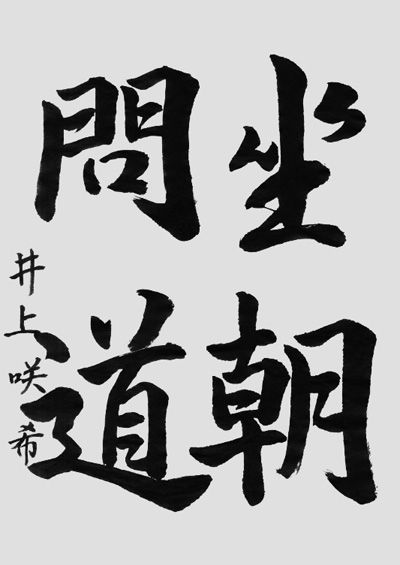 坐朝
問道
井上咲希